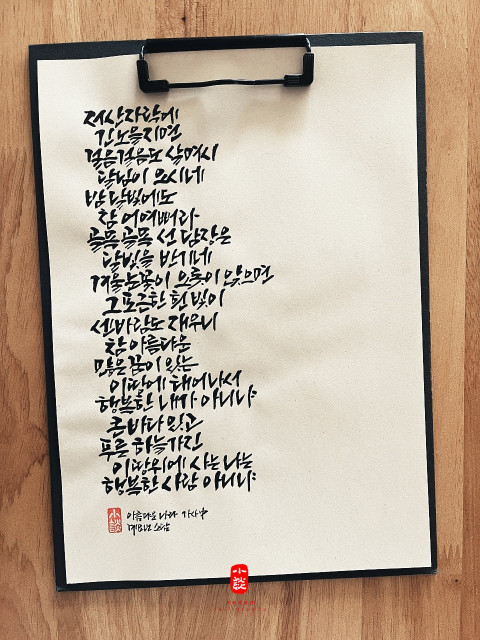 저 산자락에
긴 노을 지면
걸음걸음도 살며시
달님이 오시네
밤 달빛에도
참 어여뻐라
골목골목 선 담장은
달빛을 반기네
겨울 눈꽃이 오롯이 앉으면
그 포근한 흰 빛이
센 바람도 재우니
참 아름다운
많은 꿈이 있는
이 땅에 태어나서
행복한 내가 아니냐
큰 바다 있고
푸른 하늘 가진
이 땅 위에 사는 나는
행복한 사람 아니냐
小談
아름다운 나라 가사 中
소담
小談